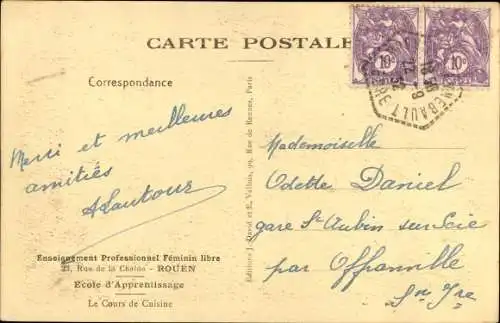 CARTE POSTALE
10c 10c
Correspondance
Merci et meilleures
amitiés
ALautour
Enseignement Professionnel Féminin libre
23, Rue de la Chaîne - ROUEN
Ecole d'Apprentissage
Le Cours de Cuisine
Editions J. David et E. Vallois, 99, Rue de Rennes, Paris
Mademoiselle
Odette Daniel
gare St Aubin sur Scie
par Offranville
Sne Ifre